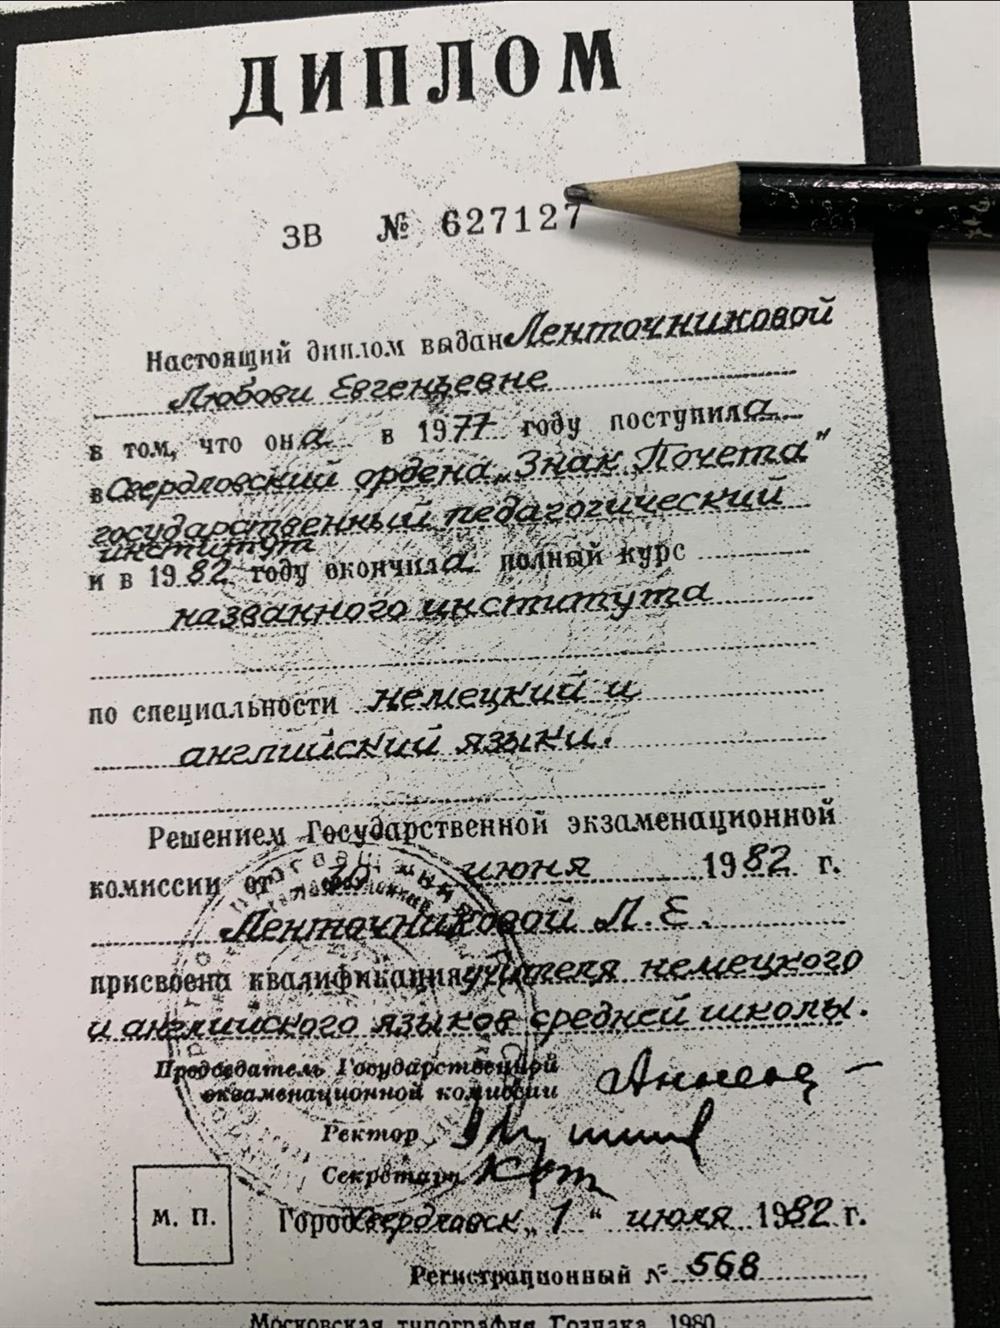 ДИПЛОМ
ЗВ № 627127
Настоящий диплом выдан Ленточниковой
Любови Евгеньевне
в том, что она в 1977 году поступила
в Свердловский ордена „Знак Почета"
государственный педагогический
институт
и в 1982 году окончила полный курс
названного института
по специальности немецкий и
английский языки.
Решением Государственной экзаменационной
комиссии от 30 июня 1982 г.
Ленточниковой Л.Е.
присвоена квалификация учителя немецкого
и английского языков средней школы.
Председатель Государственной
экзаменационной комиссии
Ректор
Секретарь
М. П.
Город Свердловск „1" июля 1982 г.
Регистрационный № 568
Московская типография Гознака. 1980.